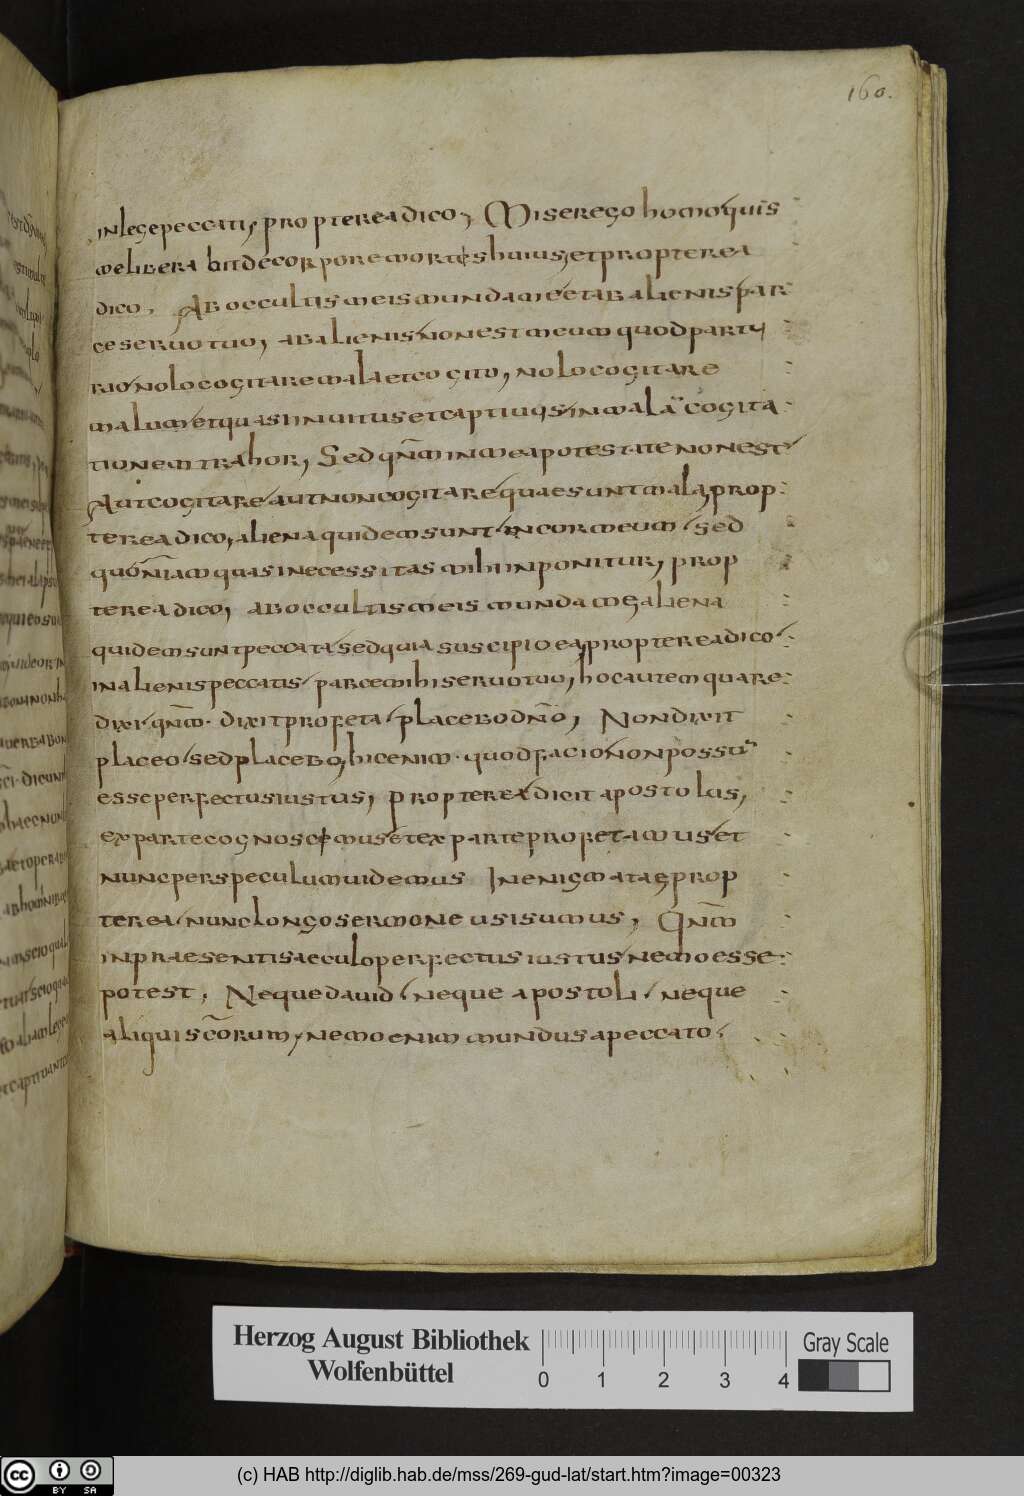 160.
in lege peccati, propterea dico, Miser ego homo quis
me liberabit de corpore mortis huius, et propterea
dico, Ab occultis meis munda me et ab alienis par
ce seruo tuo, ab alienis non est meum quod partu
rio nolo cogitare mala et cogito, nolo cogitare
malum et quasi inuitus et captiuus in mala cogita
tionem trahor, Sed qnm in mea potestate non est
Aut cogitare aut non cogitare quae sunt mala, prop
terea dico, aliena quidem sunt in cor meum sed
quoniam quasi necessitas mihi inponitur, prop
terea dico, ab occultis meis munda me, aliena
quidem sunt peccata sed quia suscipio ea, propterea dico
in alienis peccatis parce mihi seruo tuo, hoc autem quare
dixi qnm. dixit profeta placebo dno, Non dixit
placeo sed placebo, hic enim quod facio non possu
esse perfectus iustus, propterea dicit apostolus,
ex parte cognoscimus et ex parte profetamus et
nunc per speculum uidemus In enigmatae, prop
terea nunc longo sermone usi sumus, Qnm
in praesenti saeculo perfectus iustus nemo esse
potest, Neque dauid neque apostoli neque
aliqui scorum, nemo enim mundus a peccato
Herzog August Bibliothek
Wolfenbüttel
0 1 2 3 4
Gray Scale
cc BY SA
(c) HAB http://diglib.hab.de/mss/269-gud-lat/start.htm?image=00323